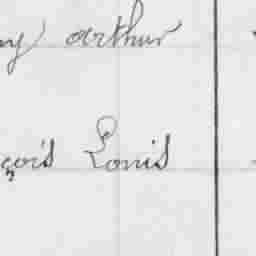 ny arthur
çois Louis